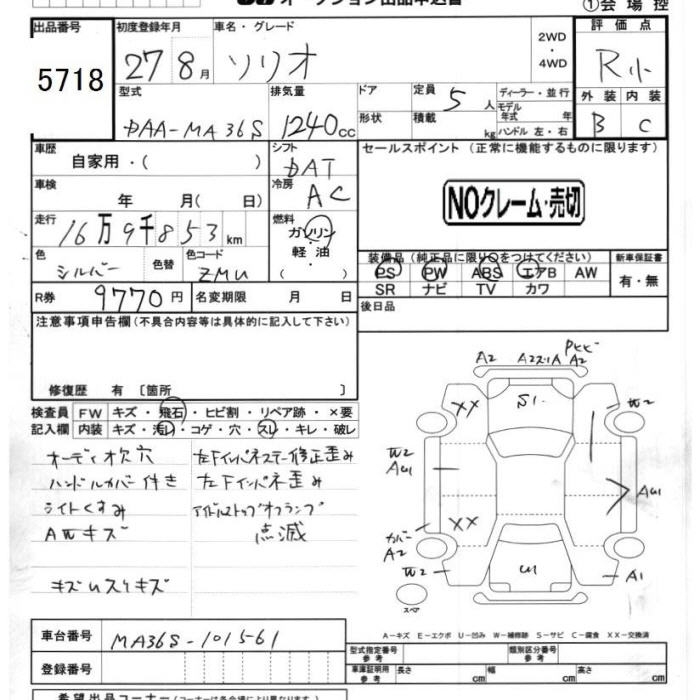 ①会場控
出品番号 初度登録年月 車名・グレード 評価点
5718 27 8月 ソリオ 2WD ・ 4WD R小
型式 排気量 ドア 定員 ディーラー・並行 外装 内装
DAA-MA36S 1240cc 5人 モデル年式 年 B C
形状 積載 kg ハンドル 左・右
車歴 シフト セールスポイント (正常に機能するものに限ります)
自家用・( ) DAT
車検 冷房 NOクレーム・売切
年 月( 日) AC
走行 燃料
16万9千853km ガソリン・軽油・( )
装備品(純正品に限り○をつけてください) 新車保証書
色 色替 色コード PS PW ABS エアB AW 有・無
シルバー ZMU SR ナビ TV カワ
R券 9770円 名変期限 月 日 後日品
注意事項申告欄(不具合内容等は具体的に記入して下さい)
修復歴 有 [箇所 ]
検査員 FW キズ・飛石・ヒビ割・リペア跡・×要
記入欄 内装 キズ・汚レ・コゲ・穴・スレ・キレ・破レ
A2 A2スリA A2
XX S1 W2
オーディオ欠穴 左Fインパネステー修正歪み W2
ハンドルカバー付き 左Fインパネ歪み AU1
ライトくすみ アイドルストップオフランプ AU1
AWキズ 点滅 XX
カバー A2
W2 U1 A1
スペア
A-キズ E-エクボ U-凹み W-補修跡 S-サビ C-腐食 XX-交換済
車台番号 MA36S-101561
型式指定番号 参考 類別区分番号 参考
登録番号 車庫証明用 参考 長さ cm 幅 cm 高さ cm
希望出品コーナー(コーナーは各会場により